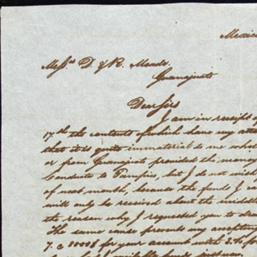 Mexico
Mess.rs D. & R. Meade.
Guanajuato
Dear Sirs
I am in receipt of
17th the contents of which have my atte
that it is quite immaterial to me wheth
or from Guanajuato provided the money
Conducta to Tampico, but I do not wish
of next month, because the funds I ca
will only be received about the middle
the reason why I requested you to dra
The same cause prevents my accepting
for your account with 2%